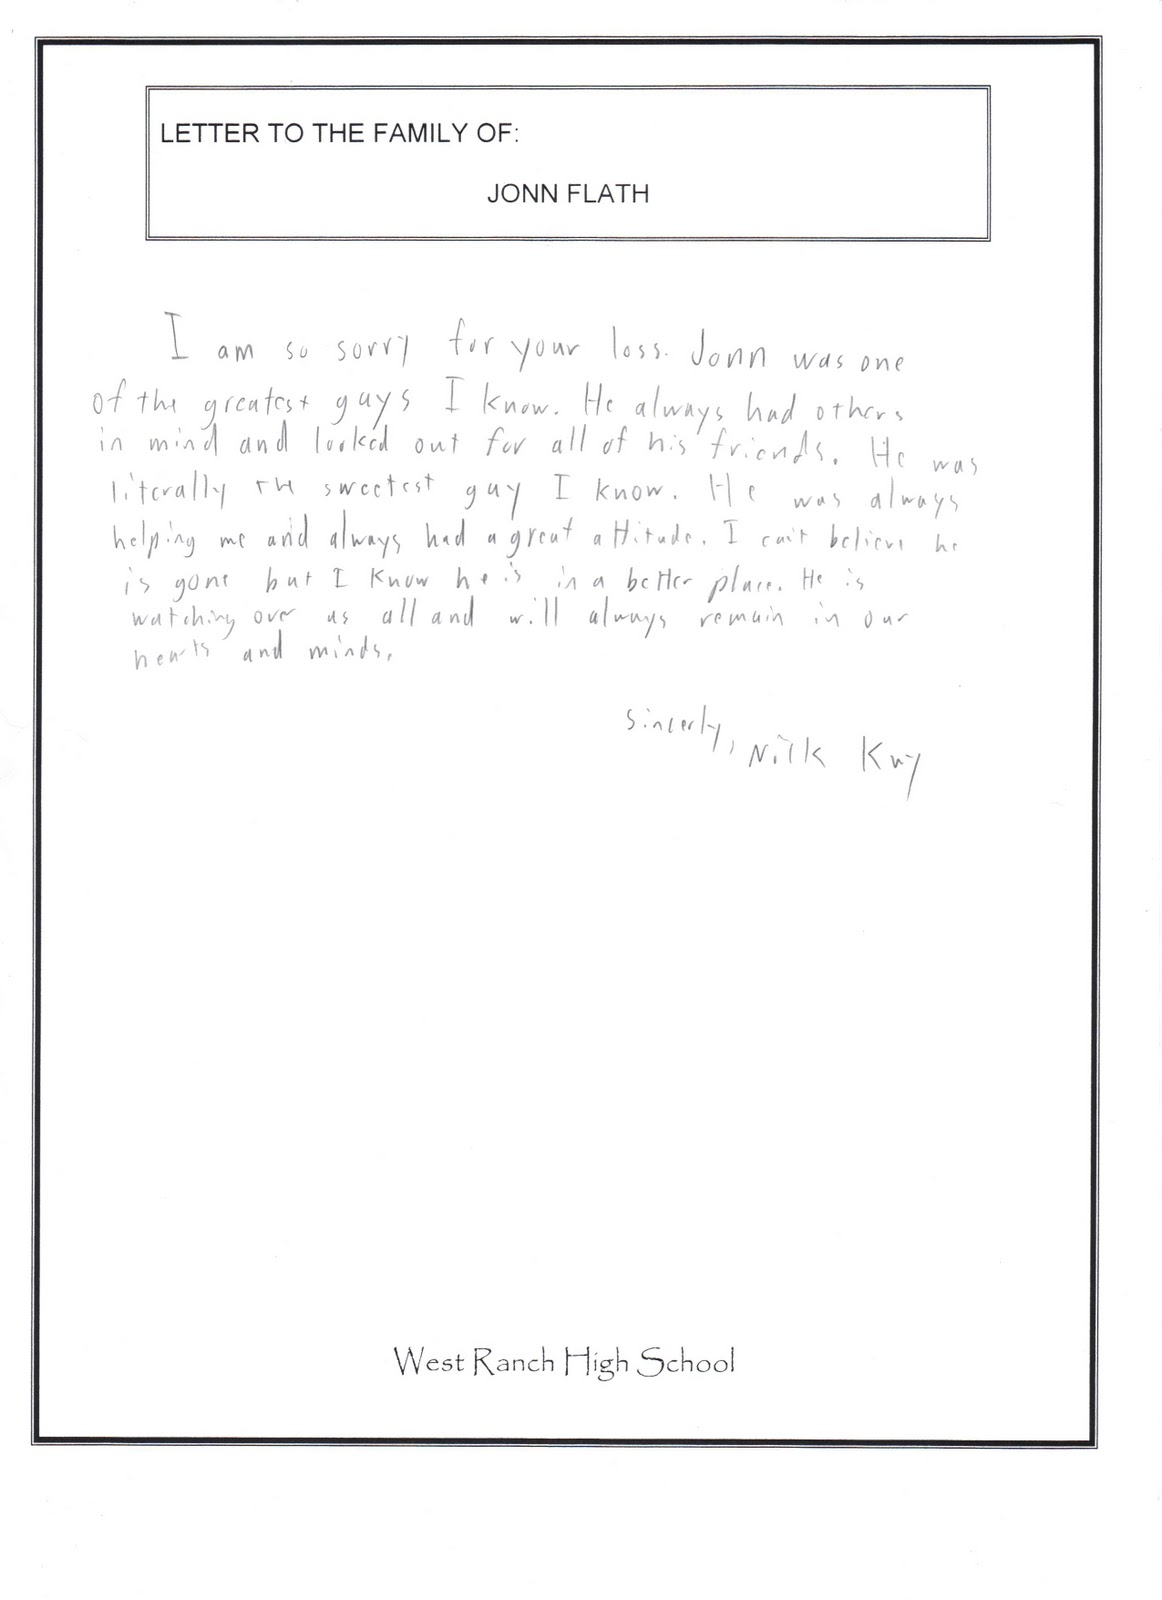 LETTER TO THE FAMILY OF:
JONN FLATH
I am so sorry for your loss. Jonn was one
of the greatest guys I know. He always had others
in mind and looked out for all of his friends. He was
literally the sweetest guy I know. He was always
helping me and always had a great attitude. I can't believe he
is gone but I know he is in a better place. He is
watching over us all and will always remain in our
hearts and minds.
Sincerly,
West Ranch High School